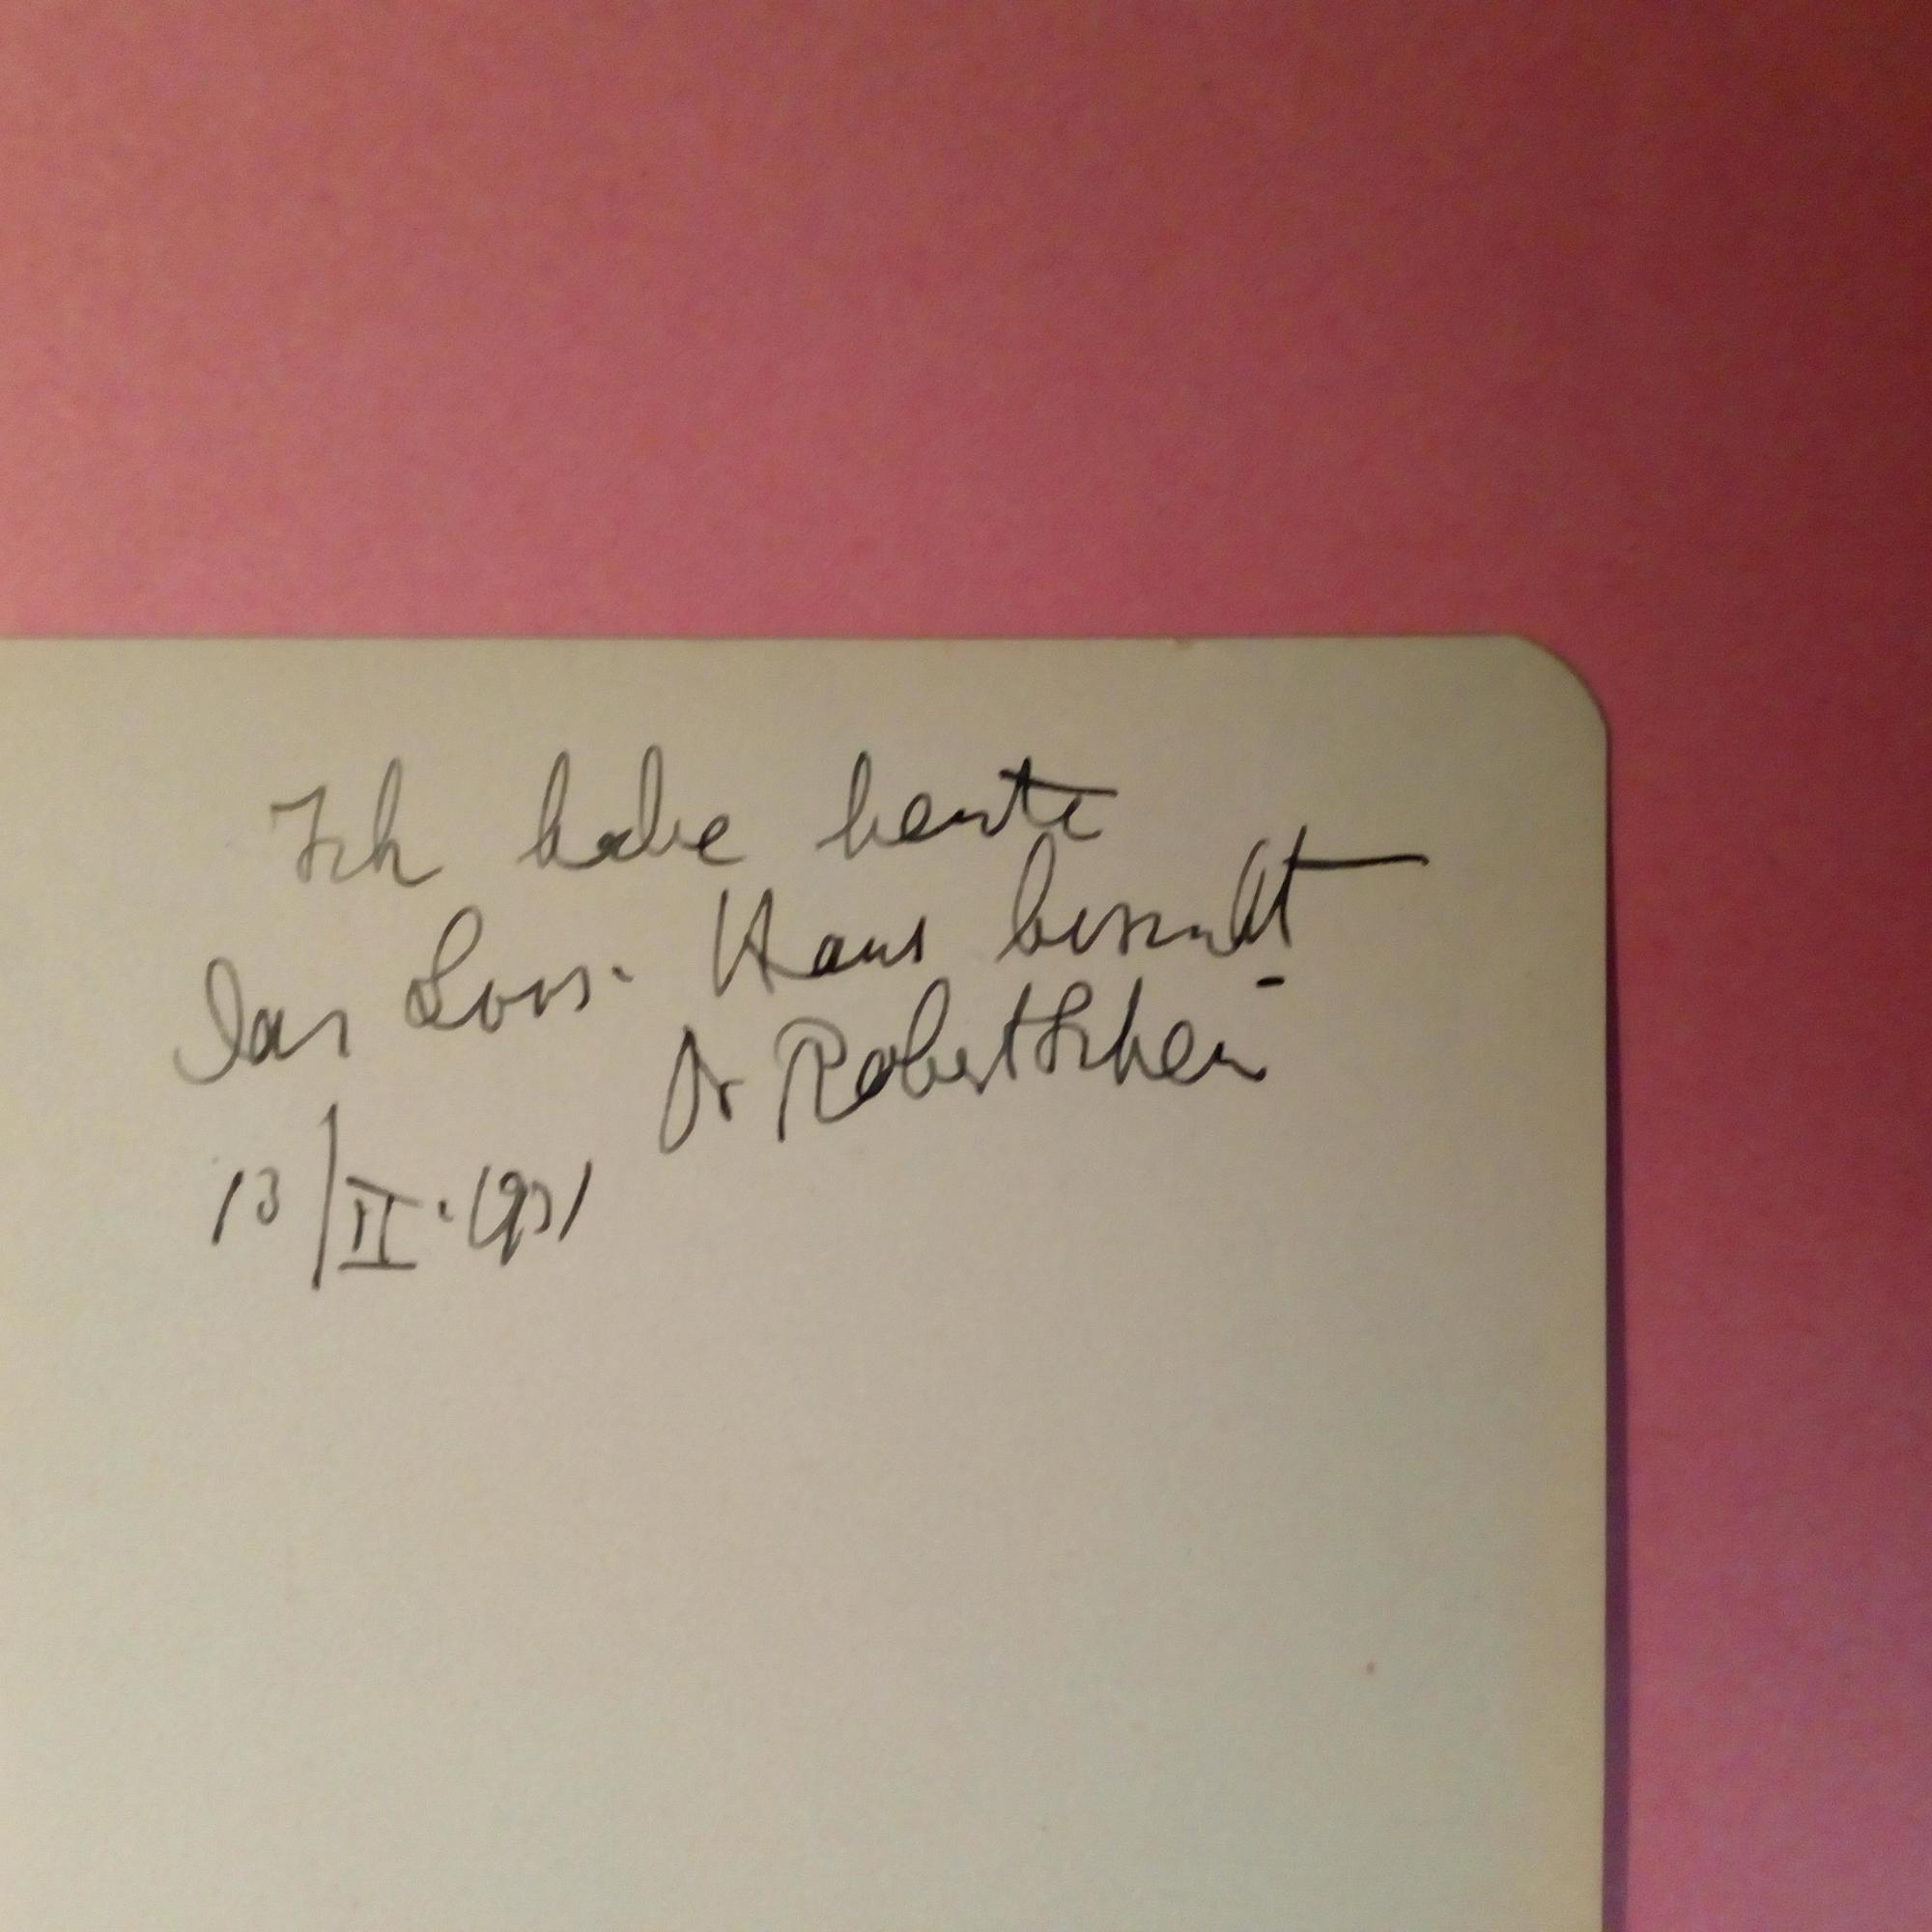 Ich habe heute
das Loos-Haus besucht
Dr Robert
13/II.1931